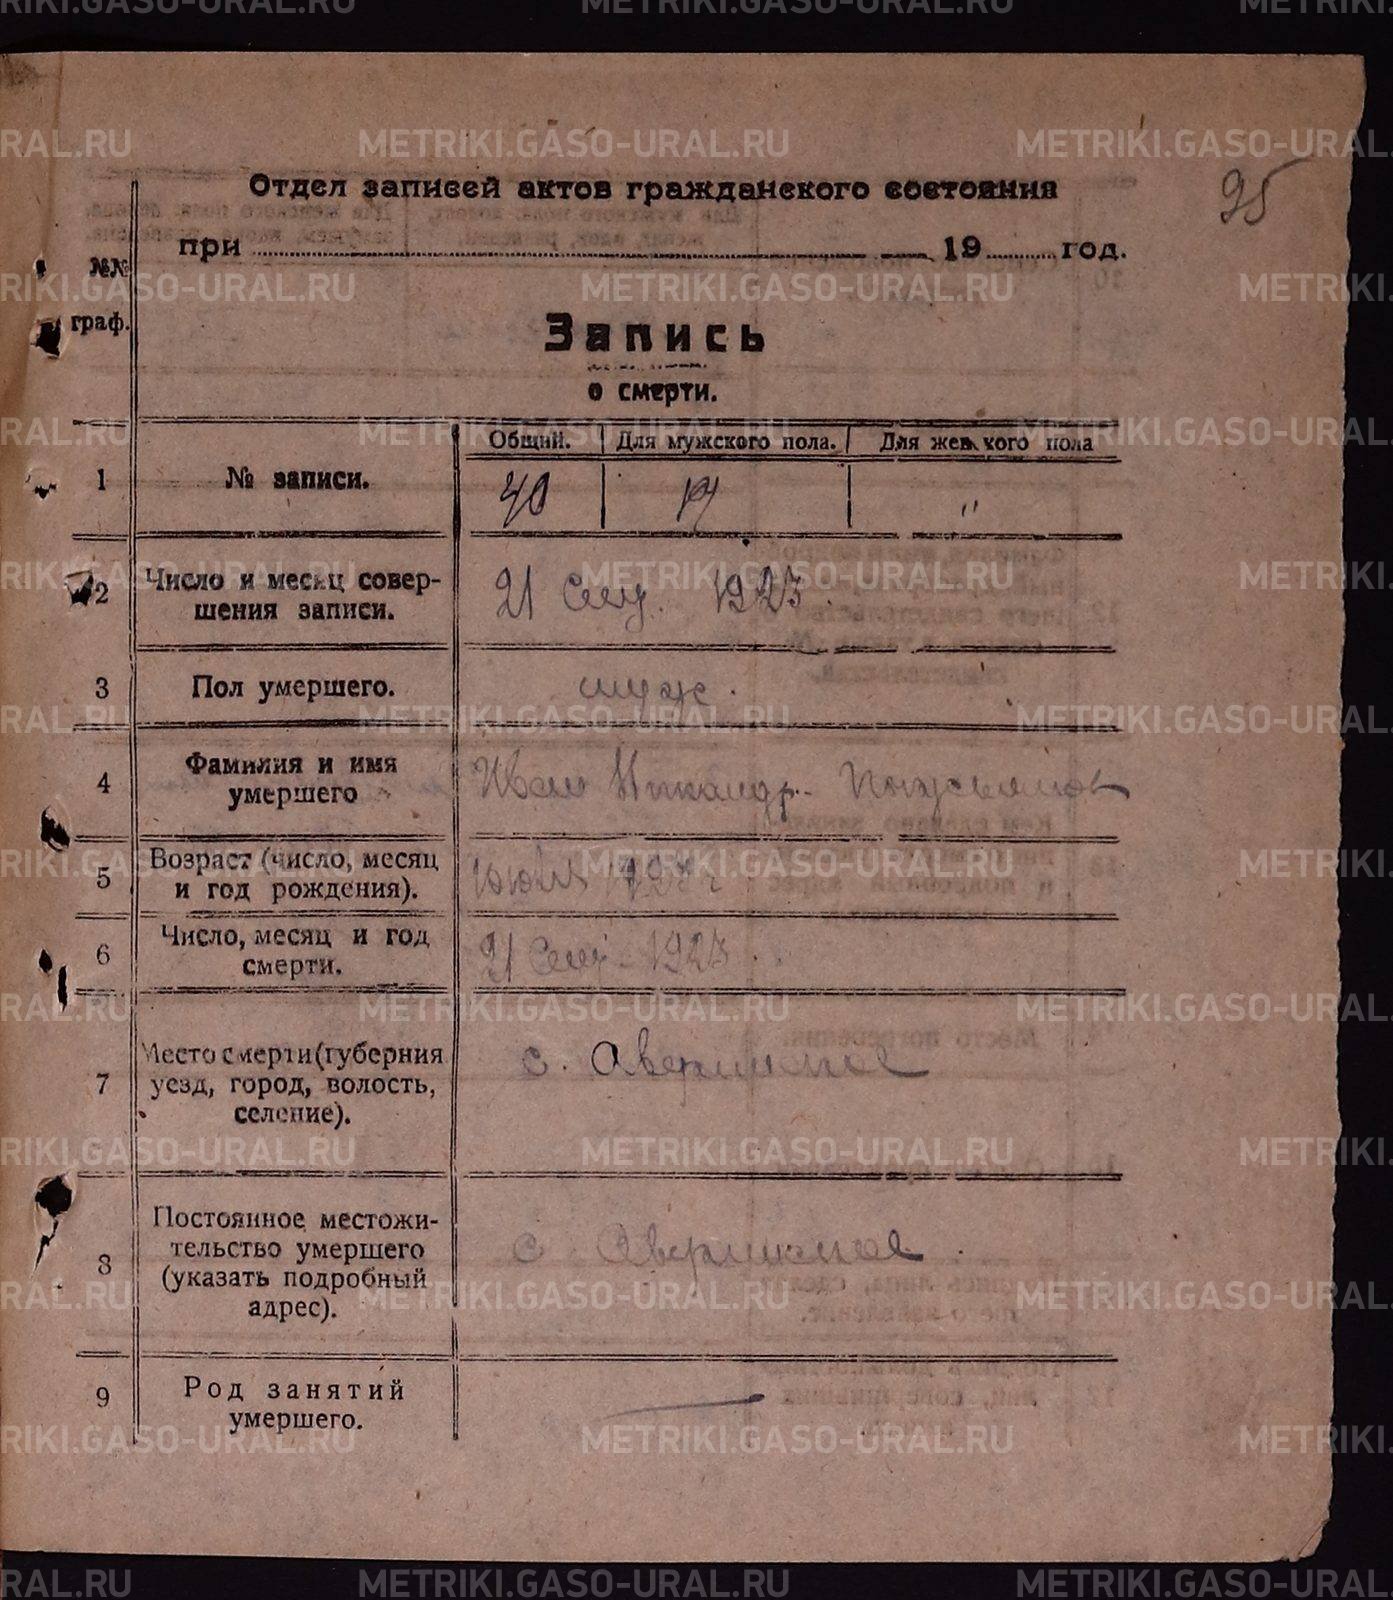 95
Отдел записей актов гражданского состояния
при 19 год.
№№ граф.
Запись
о смерти.
Общий. Для мужского пола. Для женского пола
1 № записи. 40 "
2 Число и месяц совер-
шения записи. 21 1923
3 Пол умершего. муж.
4 Фамилия и имя
умершего Иван Никандр.
5 Возраст (число, месяц
и год рождения).
6 Число, месяц и год
смерти. 21 1923
7 Место смерти (губерния
уезд, город, волость,
селение). с. Аверинское
8 Постоянное местожи-
тельство умершего
(указать подробный
адрес). с Аверинское
9 Род занятий
умершего.
METRIKI.GASO-URAL.RU